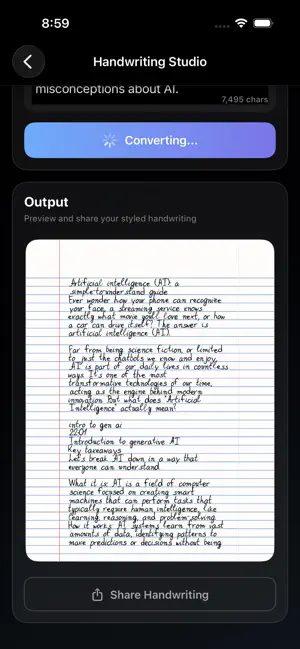 8:59
Handwriting Studio
misconceptions about AI.
7,495 chars
Converting...
Output
Preview and share your styled handwriting
Artificial intelligence (AI): a
simple-to-understand guide
Ever wonder how your phone can recognize
your face, a streaming service knows
exactly what movie you'll love next, or how
a car can drive itself? The answer is
artificial intelligence (AI).
Far from being science fiction, or limited
to just the chatbots we know and enjoy,
AI is part of our daily lives in countless
ways. It's one of the most
transformative technologies of our time,
acting as the engine behind modern
innovation. But what does Artificial
Intelligence actually mean?
intro to gen ai
22:01
Introduction to generative AI
Key takeaways
Let's break AI down in a way that
everyone can understand.
What it is: AI is a field of computer
science focused on creating smart
machines that can perform tasks that
typically require human intelligence, like
learning, reasoning, and problem-solving.
How it works: AI systems learn from vast
amounts of data, identifying patterns to
make predictions or decisions without being
Share Handwriting